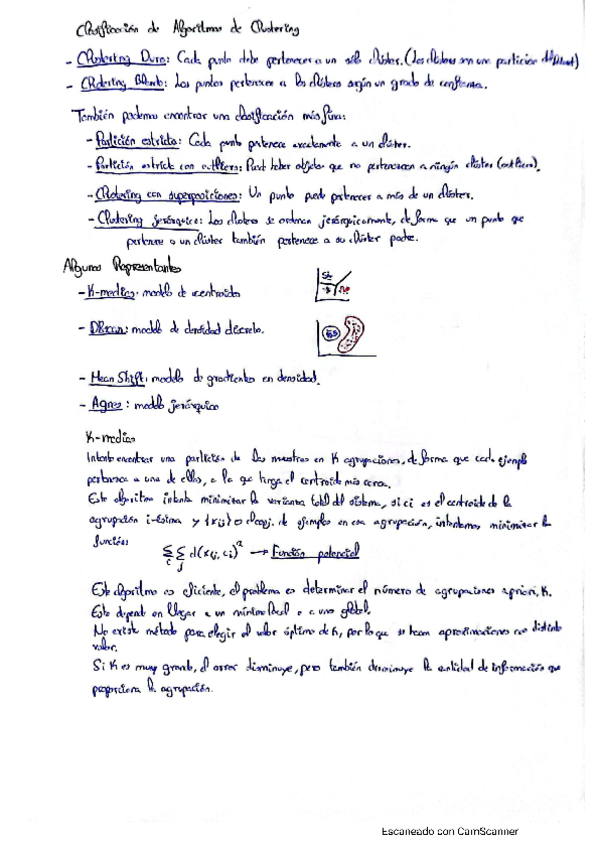 Clasificación de Algoritmos de Clustering
- Clustering Duro: Cada punto debe pertenecer a un sólo clúster. (Los clústeres son una partición del
- Clustering Blando: Los puntos pertenecen a los clústers según un grado de confianza.
También podemos encontrar una clasificación más fina:
- Partición estricta: Cada punto pertenece exactamente a un clúster.
- Partición estricta con outliers: Puede haber objetos que no pertenezcan a ningún clúster (outliers).
- Clustering con superposiciones: Un punto puede pertenecer a más de un clúster.
- Clustering jerárquico: Los clústers se ordenan jerárquicamente, de forma que un punto que
pertenece a un clúster también pertenece a su clúster padre.
Algunos Representantes
- K-medias: modelo de centroides
- DBscan: modelo de densidad discreto.
- Mean Shift: modelo de gradientes en densidad.
- Agnes: modelo jerárquico
K-medias
Intenta encontrar una partición de las muestras en K agrupaciones, de forma que cada ejemplo
pertenezca a una de ellas, a la que tenga el centroide más cerca.
Este algoritmo intenta minimizar la varianza total del sistema, si ci es el centroide de la
agrupación i-ésima y {xij} es el conj. de ejemplos en esa agrupación, intentamos minimizar la
función:
Σi Σj d(xij, ci)² → Función potencial
Este algoritmo es eficiente, el problema es determinar el número de agrupaciones a priori, K.
Esto depende en llegar a un mínimo local o a uno global.
No existe método para elegir el valor óptimo de K, por lo que se hacen aproximaciones con distinto
valor.
Si K es muy grande, el error disminuye, pero también disminuye la cantidad de información que
proporciona la agrupación.
Escaneado con CamScanner